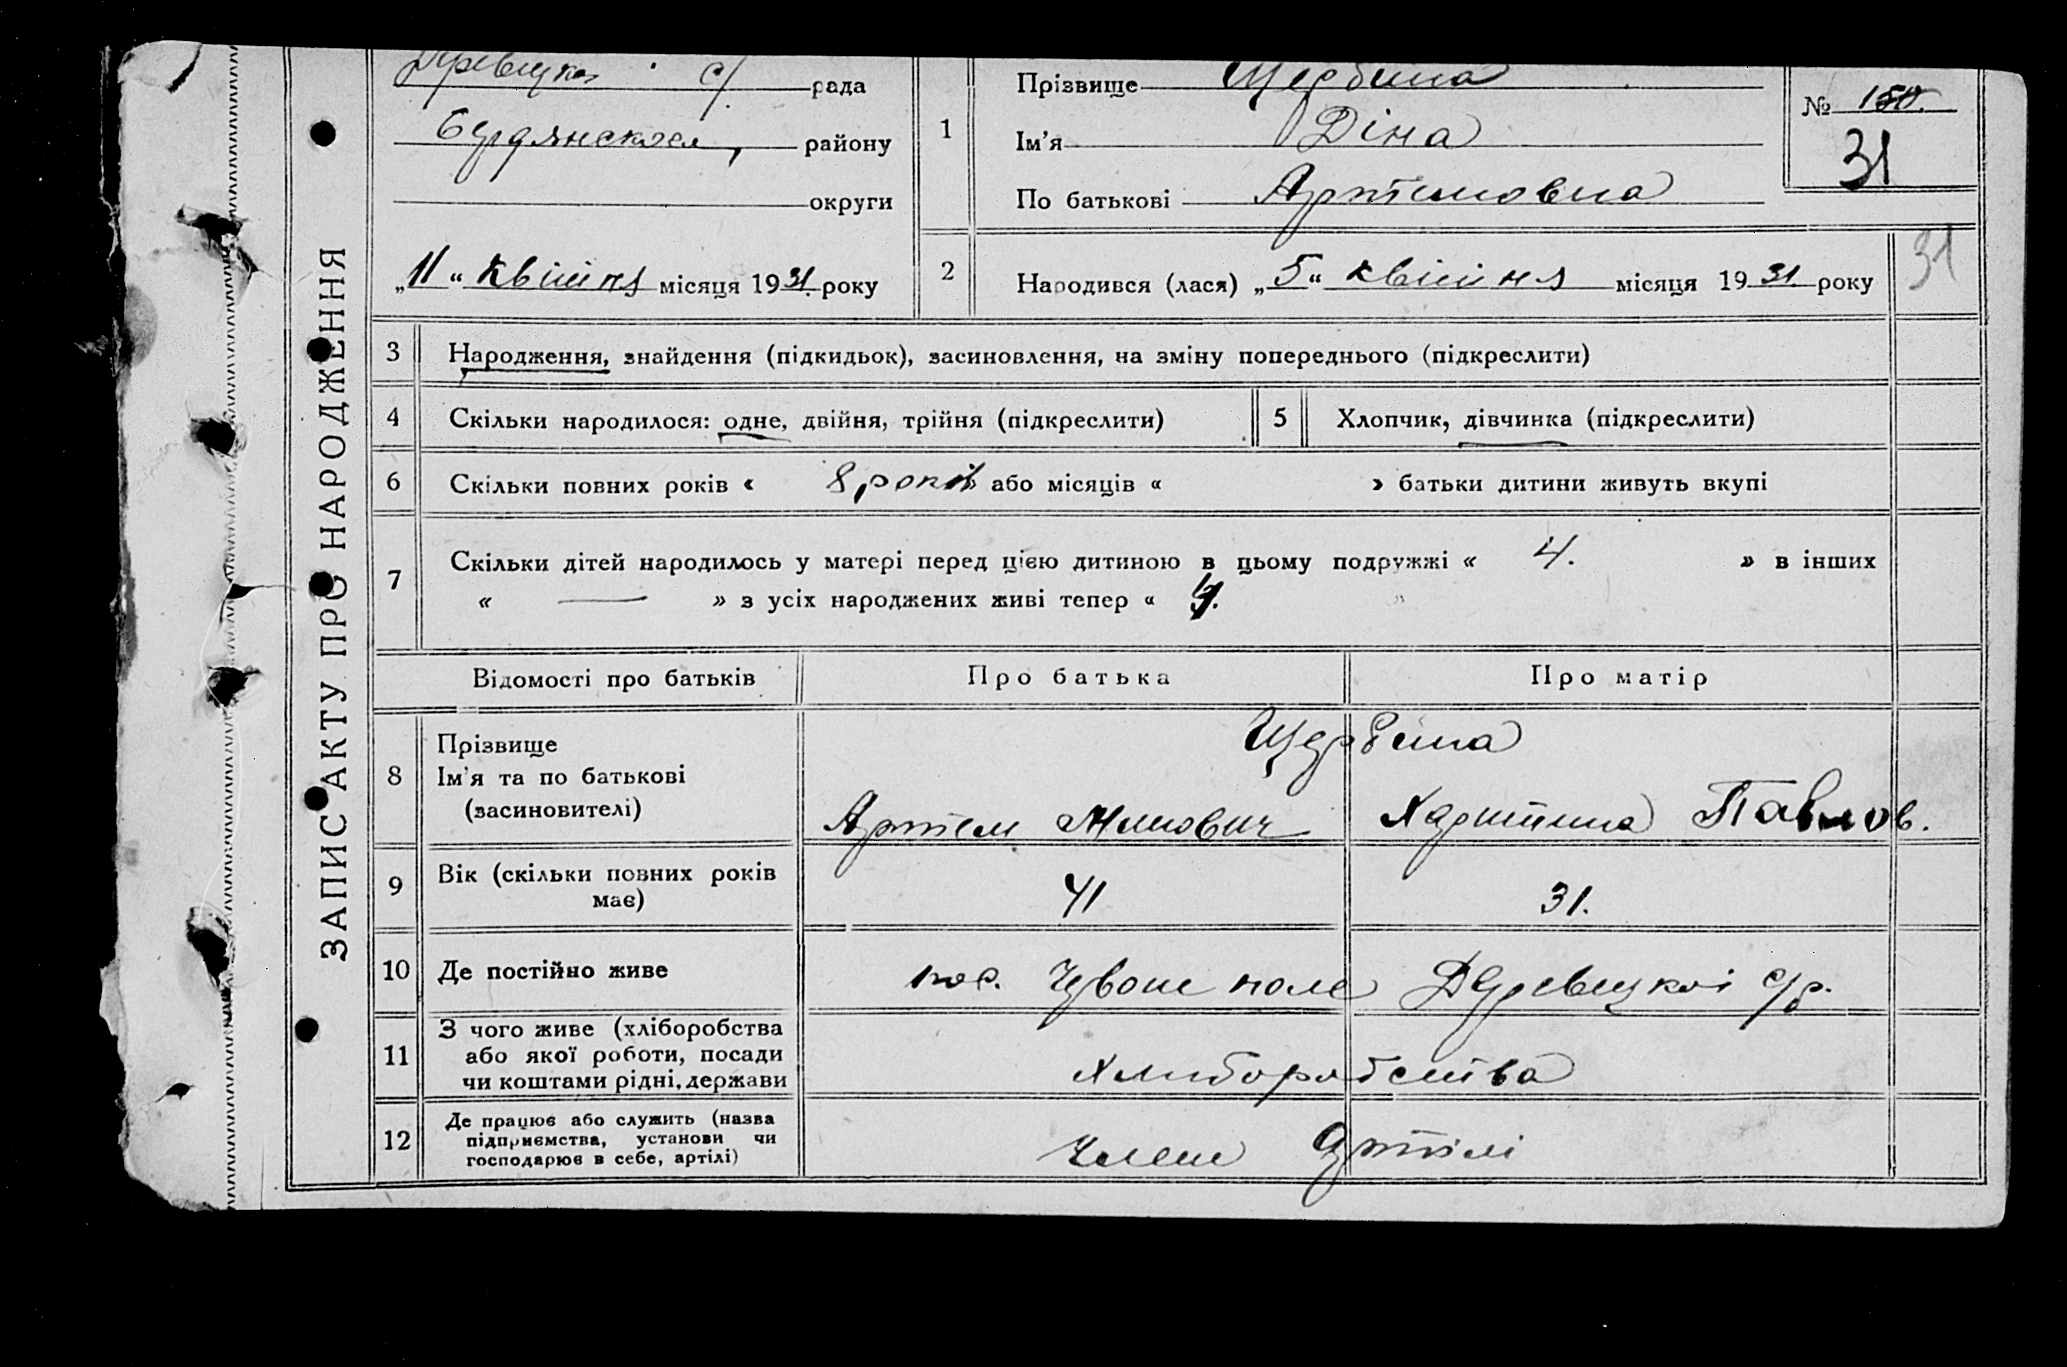 ЗАПИС АКТУ ПРО НАРОДЖЕННЯ
Деревецка с/ рада
Бердянского, району
округи
„11“ Квітня місяця 1931 року
1
Прізвище Щербина
Ім'я Діна
По батькові Артемовна
№ 150.
31
2
Народився (лася) „5“ квітня місяця 1931 року
31
3 Народження, знайдення (підкидьок), засиновлення, на зміну попереднього (підкреслити)
4 Скільки народилося: одне, двійня, трійня (підкреслити)
5 Хлопчик, дівчинка (підкреслити)
6 Скільки повних років « 8 років » або місяців « » батьки дитини живуть вкупі
7 Скільки дітей народилось у матері перед цією дитиною в цьому подружжі « 4. » в інших
« — » з усіх народжених живі тепер « 4. »
Відомості про батьків Про батька Про матір
8 Прізвище
Ім'я та по батькові
(засиновителі)
Щербина
Артем Харитина Павлов.
9 Вік (скільки повних років має)
41 31.
10 Де постійно живе
пос. Червоне поле Деревецкоі с/р.
11 З чого живе (хліборобства
або якої роботи, посади
чи коштами рідні, держави
Хлиборобства
12 Де працює або служить (назва
підприємства, установи чи
господарює в себе, артілі)
Члени Артілі